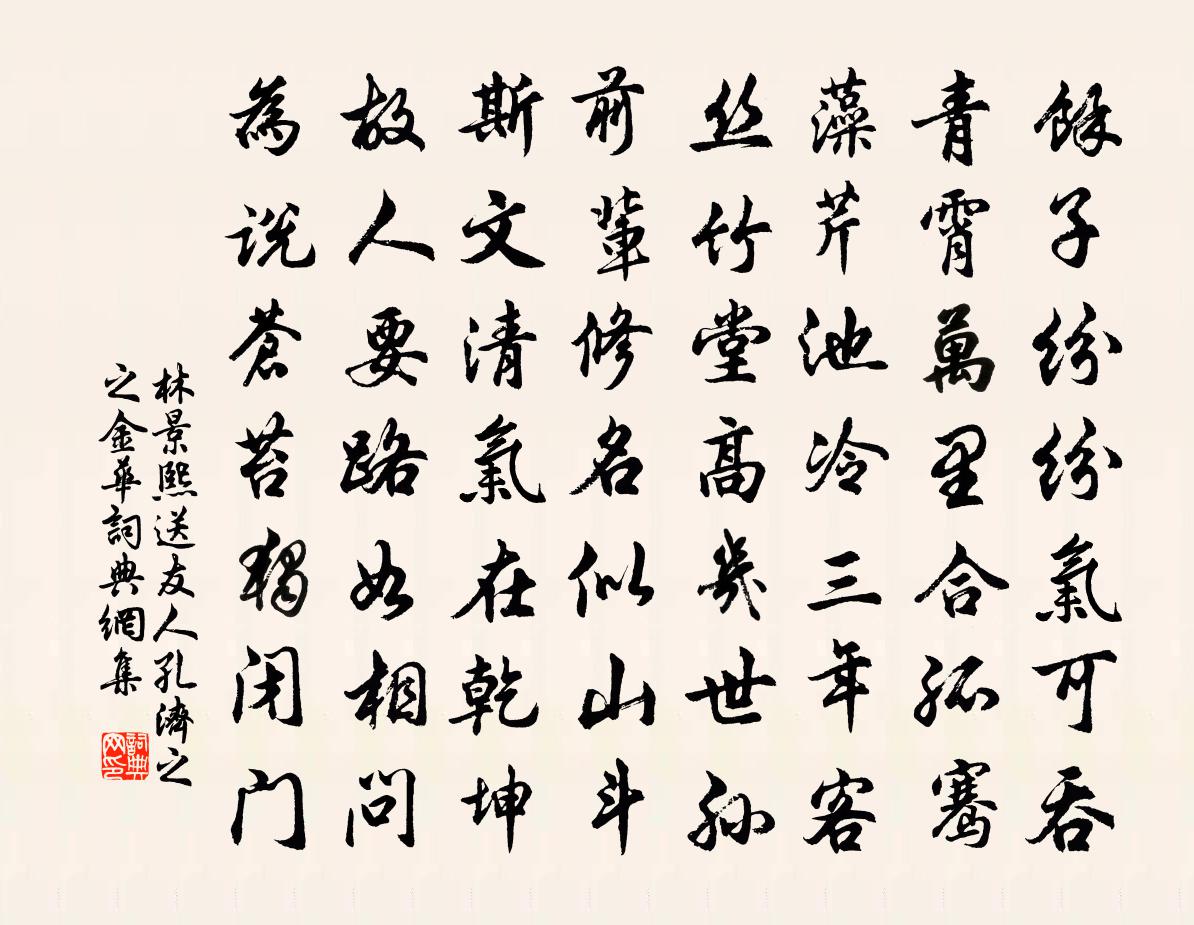 餘子紛紛氣可吞
青霄萬里合孤騫
藻芹池冷三年客
丝竹堂高幾世孫
前輩修名似山斗
斯文清氣在乾坤
故人要路如相問
為說蒼苔獨闭门
林景熙送友人孔濟之
之金華詞典網集
詞典
网印